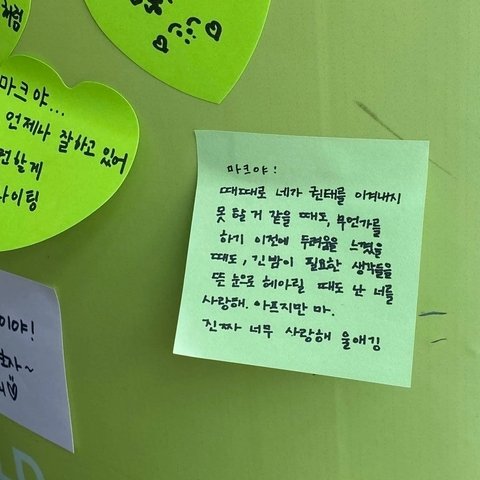 처럼
마크야...
언제나 잘하고 있어
전할게
이팅
마크야!
때때로 네가 권태를 이겨내지
못 할 거 같을 때도, 무언가를
하기 이전에 두려움을 느꼈을
때도, 긴밤이 필요한 생각들을
뜬 눈으로 헤아릴 때도 난 너를
사랑해. 아프지만 마.
진짜 너무 사랑해 울애깅
이야!